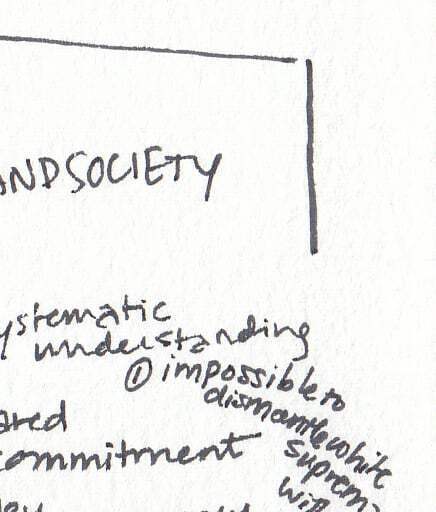 ANDSOCIETY
ystematic
understanding
① impossible to
dismantle white
suprem
ared
commitment
wit